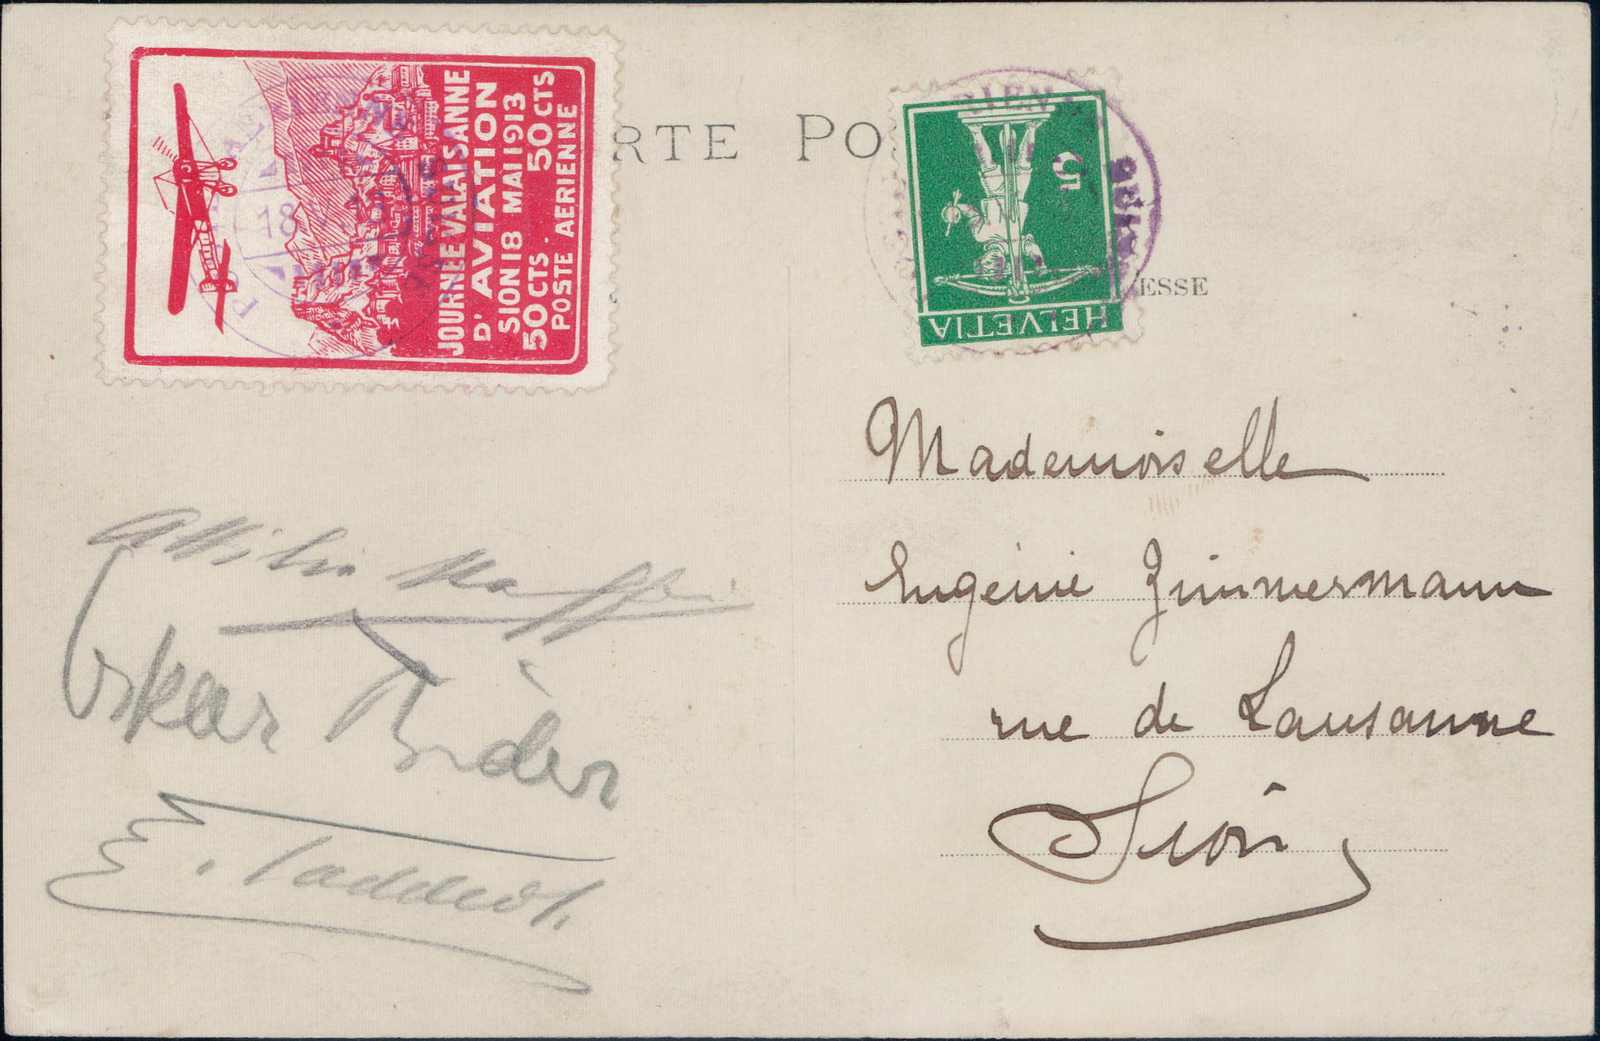 JOURNÉE VALAISANNE
D'AVIATION
SION 18 MAI 1913
50 CTS. 50 CTS
POSTE AÉRIENNE
18
RTE PO
5
HELVETIA
ESSE
Mademoiselle
Eugénie Zimmermann
rue de Lausanne
Sion
Attilio Maffei
Oskar Bider
E. Taddeoli